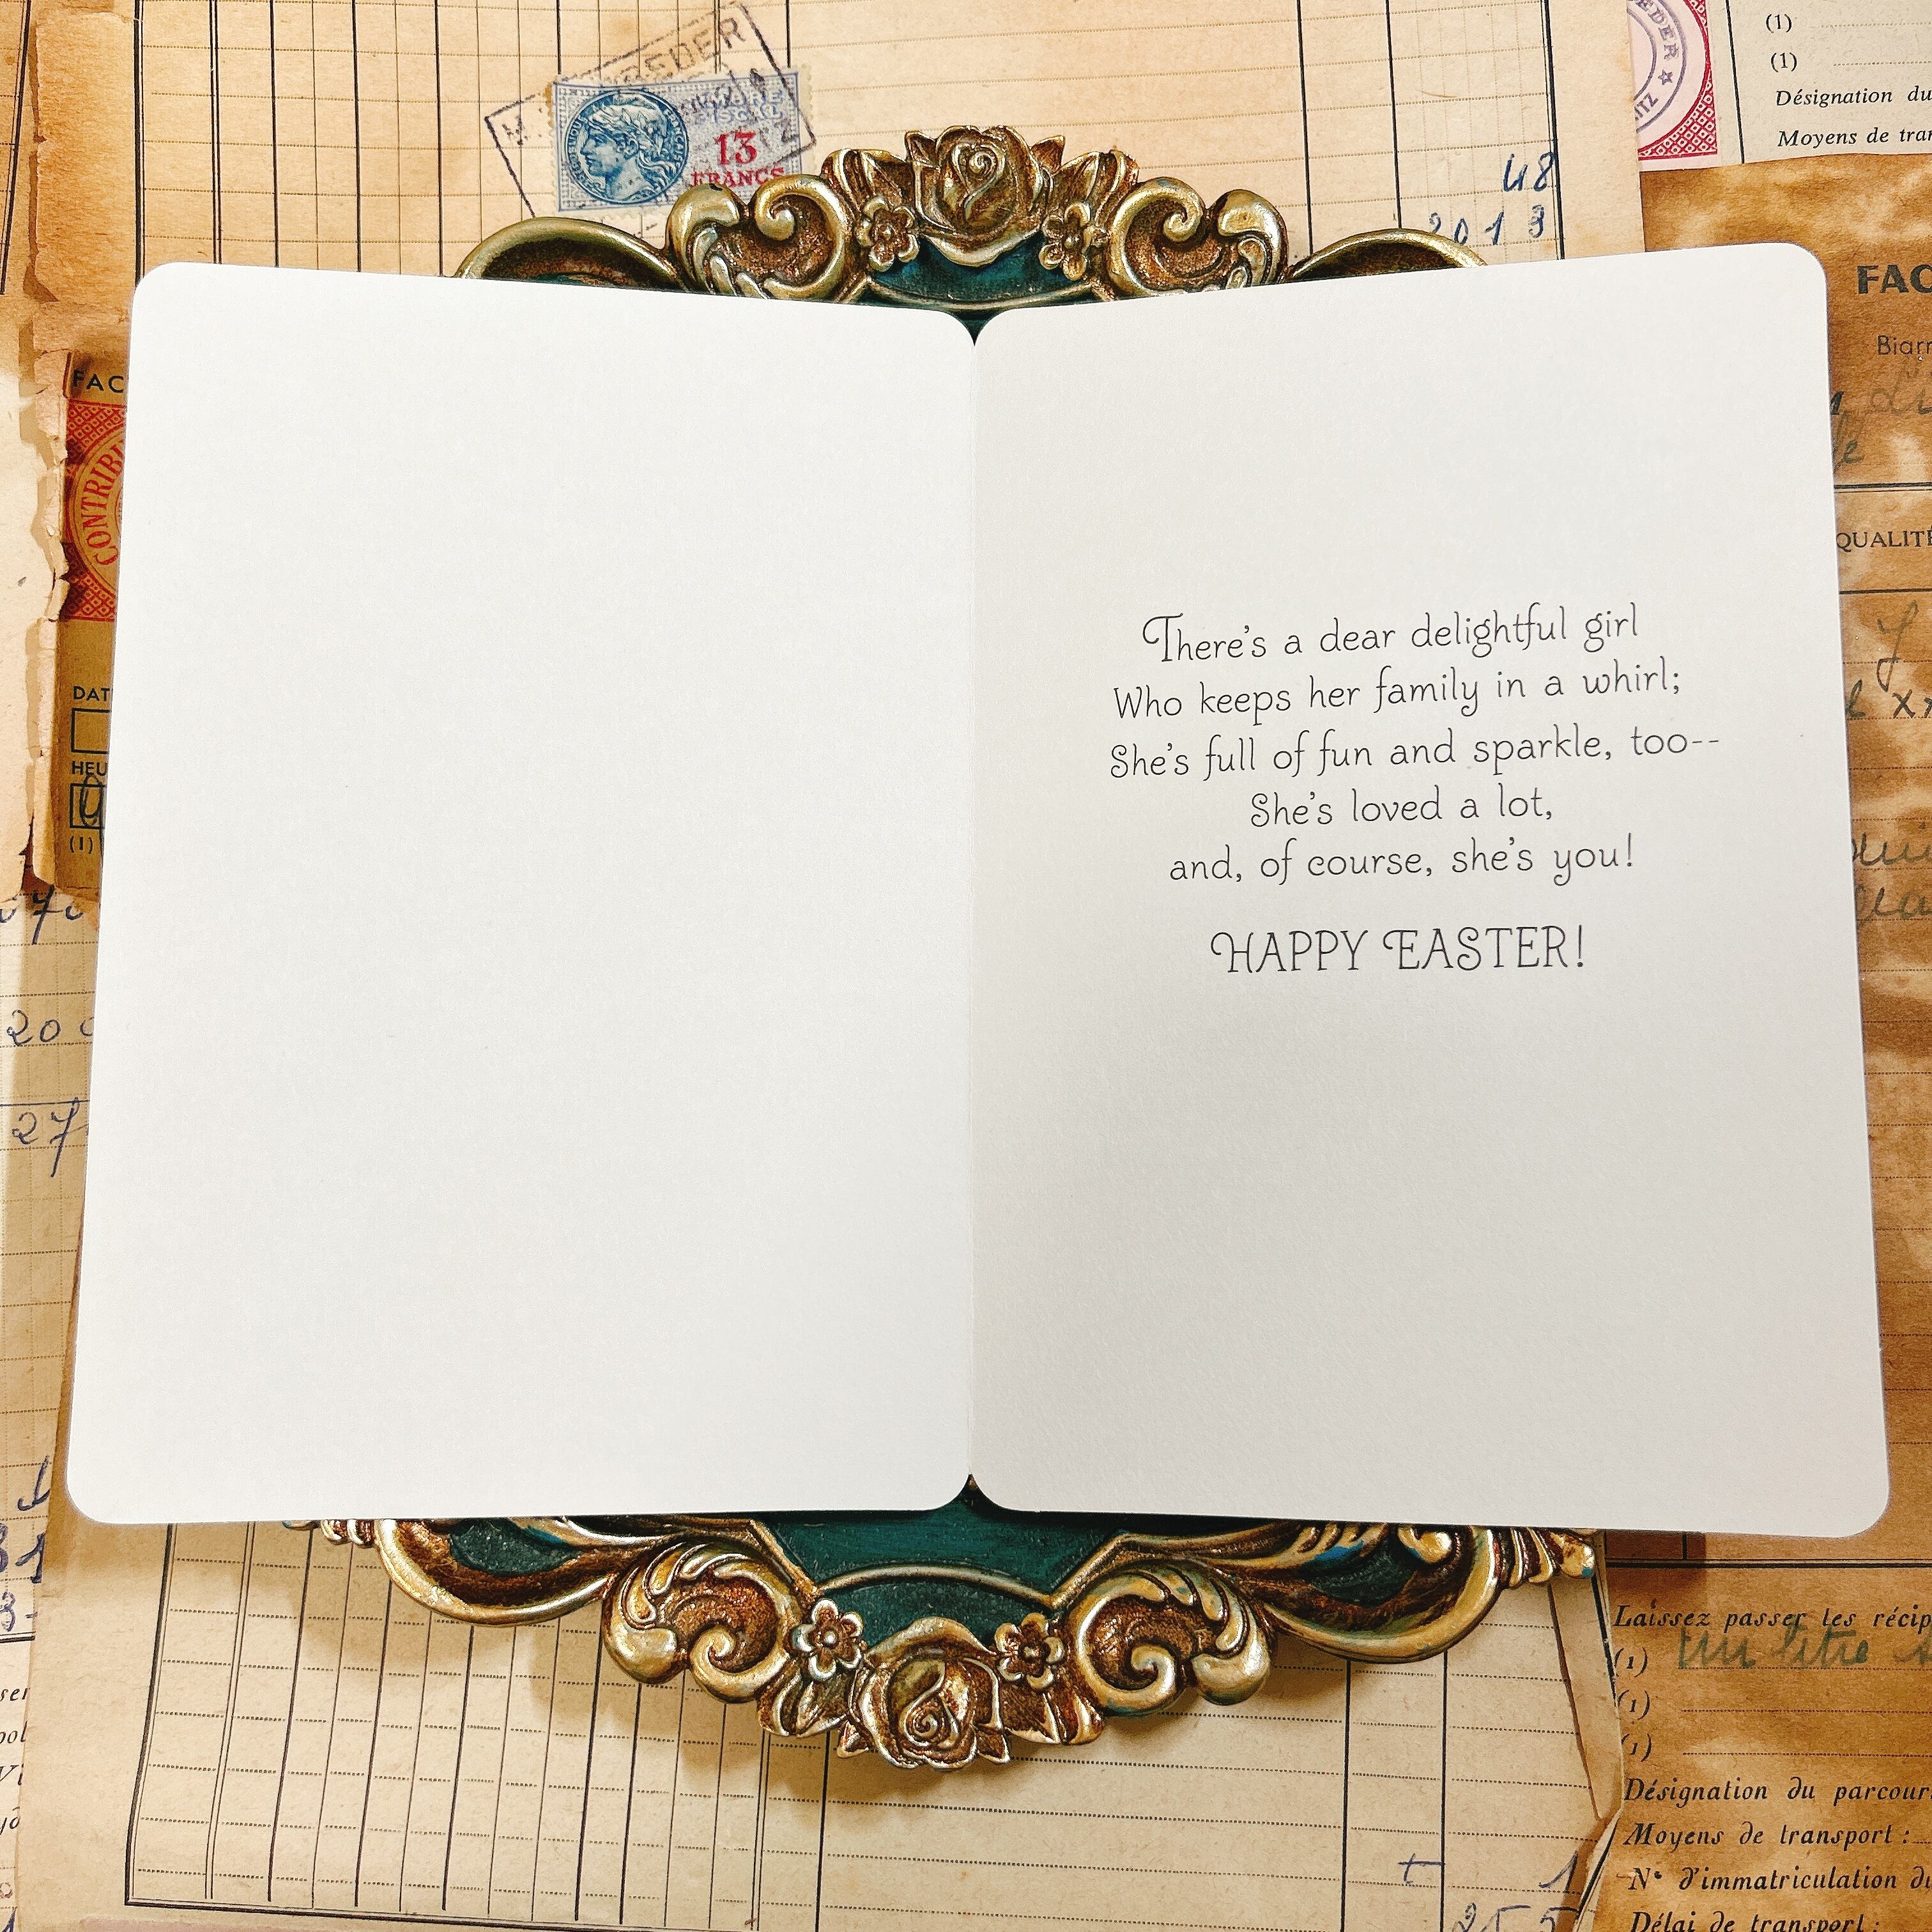 13
FRANCS
48
2013
(1)
(1)
Désignation du
Moyens de
FAC
CONTRIB
(1)
QUALITÉ
There's a dear delightful girl
Who keeps her family in a whirl;
She's full of fun and sparkle, too--
She's loved a lot,
and, of course, she's you!
HAPPY EASTER!
27
Laissez passer les
(1)
(1)
(1)
Désignation du parcours
Moyens de transport :
N° d'immatriculation du
Délai de transport :